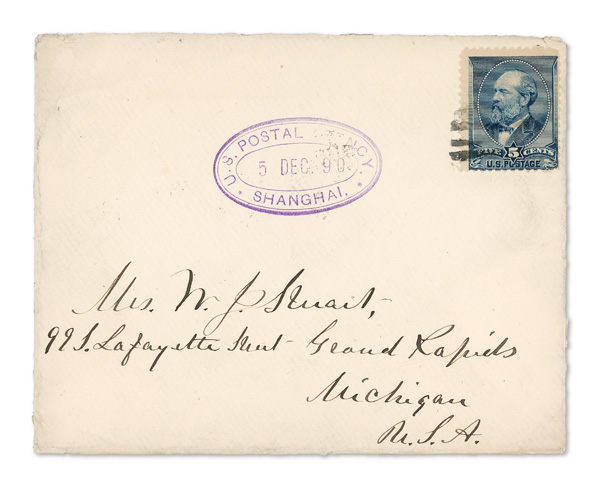 U.S. POSTAL AGENCY.
5 DEC. 90
SHANGHAI.
FIVE 5 CENTS
U.S. POSTAGE
Mrs. W. J. Stuart,
99 S. Lafayette Street Grand Rapids
Michigan
U.S.A.